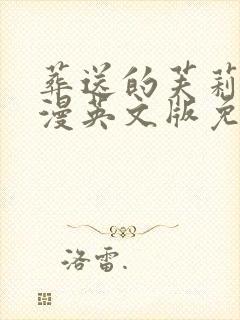 葬送的芙莉
漫英文版免
洛雷.